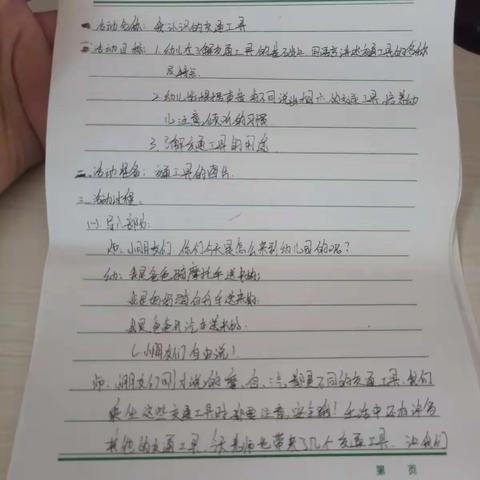 一、活动名称：我认识的交通工具
一、活动目标：1.幼儿在了解交通工具的基础上，用语言讲述交通工具的名称
及特点
2.幼儿能根据声音的不同说出相应的交通工具，培养幼
儿注意倾听的习惯
3.了解交通工具的用途
二、活动准备：交通工具的图片
三、活动过程。
(一)导入部分：
师：小朋友们，你们今天是怎么来到幼儿园的呢？
幼：我是爸爸骑摩托车送来的；
我是奶奶骑自行车送来的；
我是爸爸开汽车送来的。
(小朋友们自由说)
师：小朋友们刚才说的摩、自、汽、都是不同的交通工具，我们
乘坐这些交通工具时都要注意，安全哦！生活中还有许多
其他的交通工具，今天老师也带来了几个交通工具，让我们
第 页